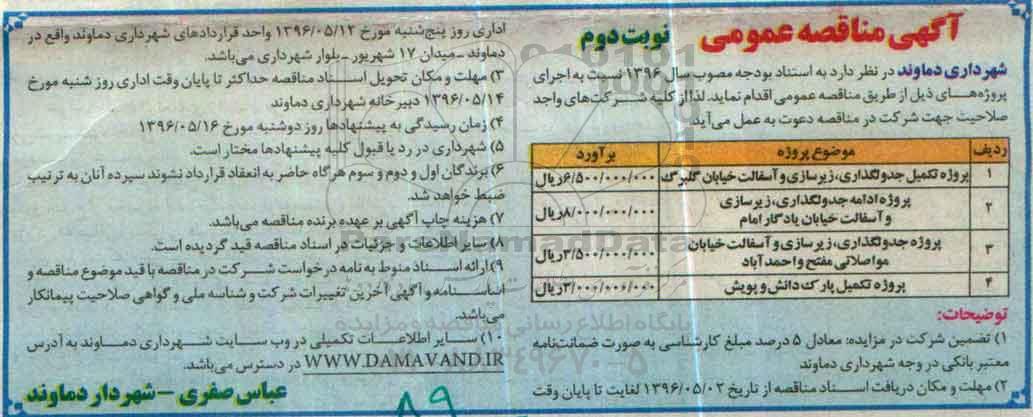 آگهی مناقصه عمومی نوبت دوم
شهرداری دماوند در نظر دارد به استناد بودجه مصوب سال ۱۳۹۶ نسبت به اجرای
پروژه‌های ذیل از طریق مناقصه عمومی اقدام نماید. لذا از کلیه شرکت‌های واجد
صلاحیت جهت شرکت در مناقصه دعوت به عمل می‌آید.
ردیف موضوع پروژه برآورد
۱ پروژه تکمیل جدولگذاری، زیرسازی و آسفالت خیابان گلبرگ ۶/۵۰۰/۰۰۰/۰۰۰ریال
۲ پروژه ادامه جدولگذاری، زیرسازی
و آسفالت خیابان یادگار امام ۸/۰۰۰/۰۰۰/۰۰۰ریال
۳ پروژه جدولگذاری، زیرسازی و آسفالت خیابان
مواصلاتی مفتح و احمدآباد ۳/۵۰۰/۰۰۰/۰۰۰ریال
۴ پروژه تکمیل پارک دانش و پویش ۳/۰۰۰/۰۰۰/۰۰۰ریال
توضیحات:
۱) تضمین شرکت در مزایده: معادل ۵ درصد مبلغ کارشناسی به صورت ضمانت‌نامه
معتبر بانکی در وجه شهرداری دماوند
۲) مهلت و مکان دریافت اسناد مناقصه از تاریخ ۱۳۹۶/۰۵/۰۲ لغایت تا پایان وقت
اداری روز پنج‌شنبه مورخ ۱۳۹۶/۰۵/۱۲ واحد قراردادهای شهرداری دماوند واقع در
دماوند ـ میدان ۱۷ شهریور ـ بلوار شهرداری می‌باشد.
۳) مهلت و مکان تحویل اسناد مناقصه حداکثر تا پایان وقت اداری روز شنبه مورخ
۱۳۹۶/۰۵/۱۴ دبیرخانه شهرداری دماوند
۴) زمان رسیدگی به پیشنهادها روز دوشنبه مورخ ۱۳۹۶/۰۵/۱۶
۵) شهرداری در رد یا قبول کلیه پیشنهادها مختار است.
۶) برندگان اول و دوم و سوم هرگاه حاضر به انعقاد قرارداد نشوند سپرده آنان به ترتیب
ضبط خواهد شد.
۷) هزینه چاپ آگهی بر عهده برنده مناقصه می‌باشد.
۸) سایر اطلاعات و جزئیات در اسناد مناقصه قید گردیده است.
۹) ارائه اسناد منوط به نامه درخواست شرکت در مناقصه با قید موضوع مناقصه و
اساسنامه و آگهی آخرین تغییرات شرکت و شناسه ملی و گواهی صلاحیت پیمانکار
می‌باشد.
۱۰) سایر اطلاعات تکمیلی در وب سایت شهرداری دماوند به آدرس
WWW.DAMAVAND.IR در دسترس می‌باشد.
عباس صفری – شهردار دماوند
۸۹
ParsNamadData
پایگاه اطلاع رسانی مناقصه و مزایده